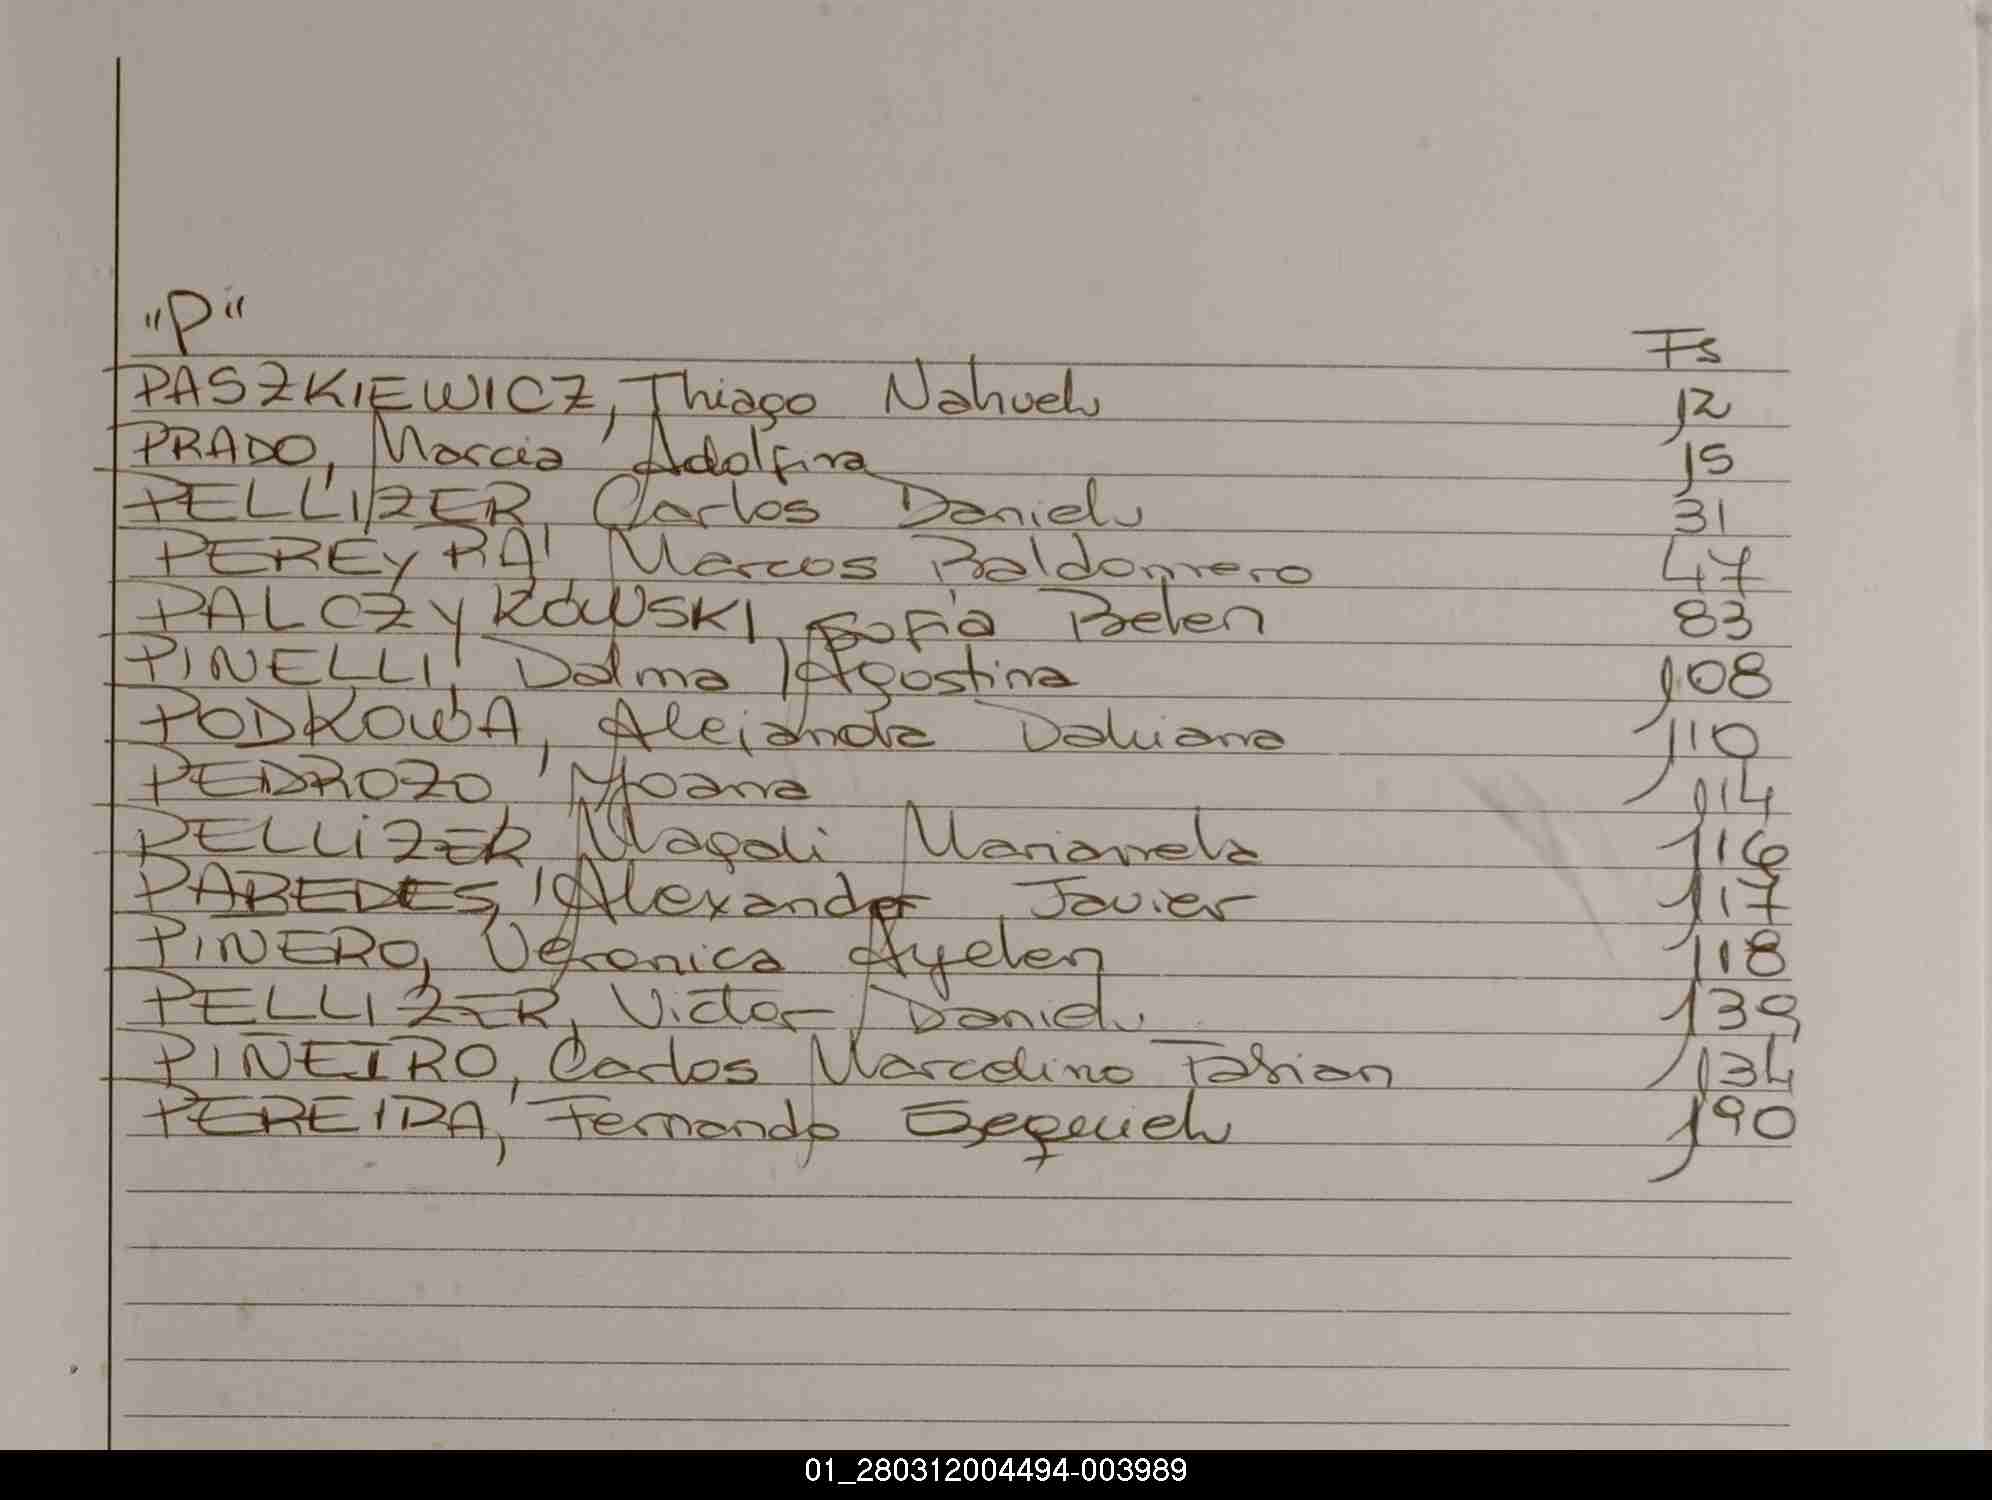 "P"
Fs
PASZKIEWICZ, Thiago Nahuel 12
PRADO, Marcia Adolfina 15
PELLIZER, Carlos Daniel 31
PEREYRA, Marcos Baldomero 47
PALCZYKOWSKI, Sofia Belen 83
PINELLI, Dalma Agostina 108
PODKOWA, Alejandra Daluiana 110
PEDROZO, Yoana 114
PELLIZER, Magali Marianela 116
PAREDES, Alexander Javier 117
PINERO, Veronica Ayelen 118
PELLIZER, Victor Daniel 139
PIÑEIRO, Carlos Marcelino Fabian 134
PEREIRA, Fernando Esequiel 190
01_280312004494-003989